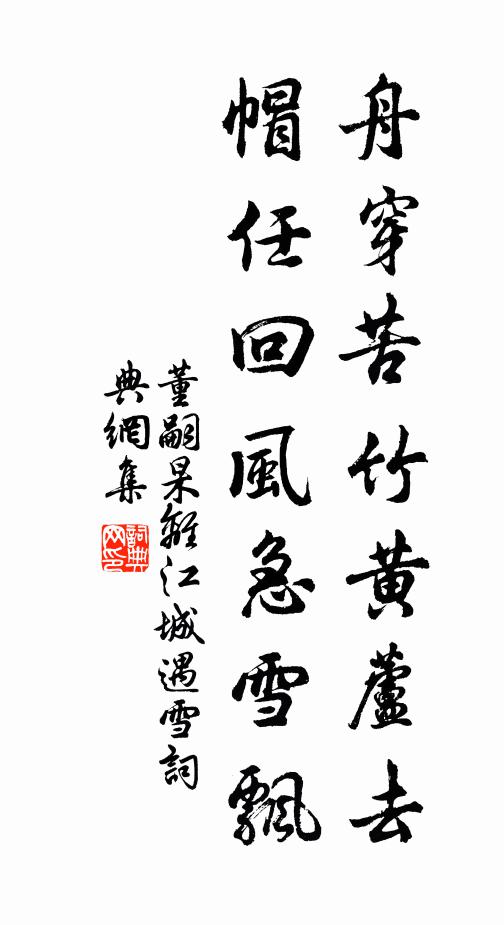 舟穿苦竹黃蘆去
帽任回風急雪飄
董嗣杲離江城遇雪詞
典網集
詞典
網印